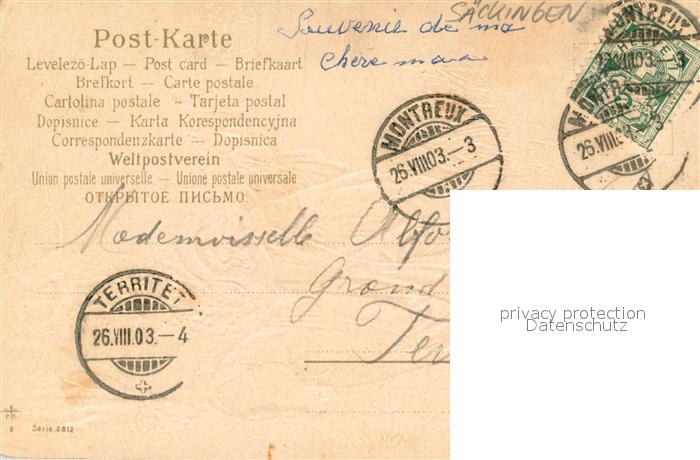 SÄCKINGEN
Souvenir de ma
chère
Post-Karte
Levelező-Lap — Post card — Briefkaart
Brefkort — Carte postale
Cartolina postale — Tarjeta postal
Dopisnice — Karta Korespondencyjna
Correspondenzkarte — Dopisnica
Weltpostverein
Union postale universelle — Unione postale universale
ОТКРЫТОЕ ПИСЬМО.
MONTREUX
26.VIII.03.–3
MONTREUX
VIII.03.–3
HELVETIA
26.VIII.
Mademoisselle
Grand
TERRITET
26.VIII.03.–4
privacy protection
Datenschutz
8 Serie 2812